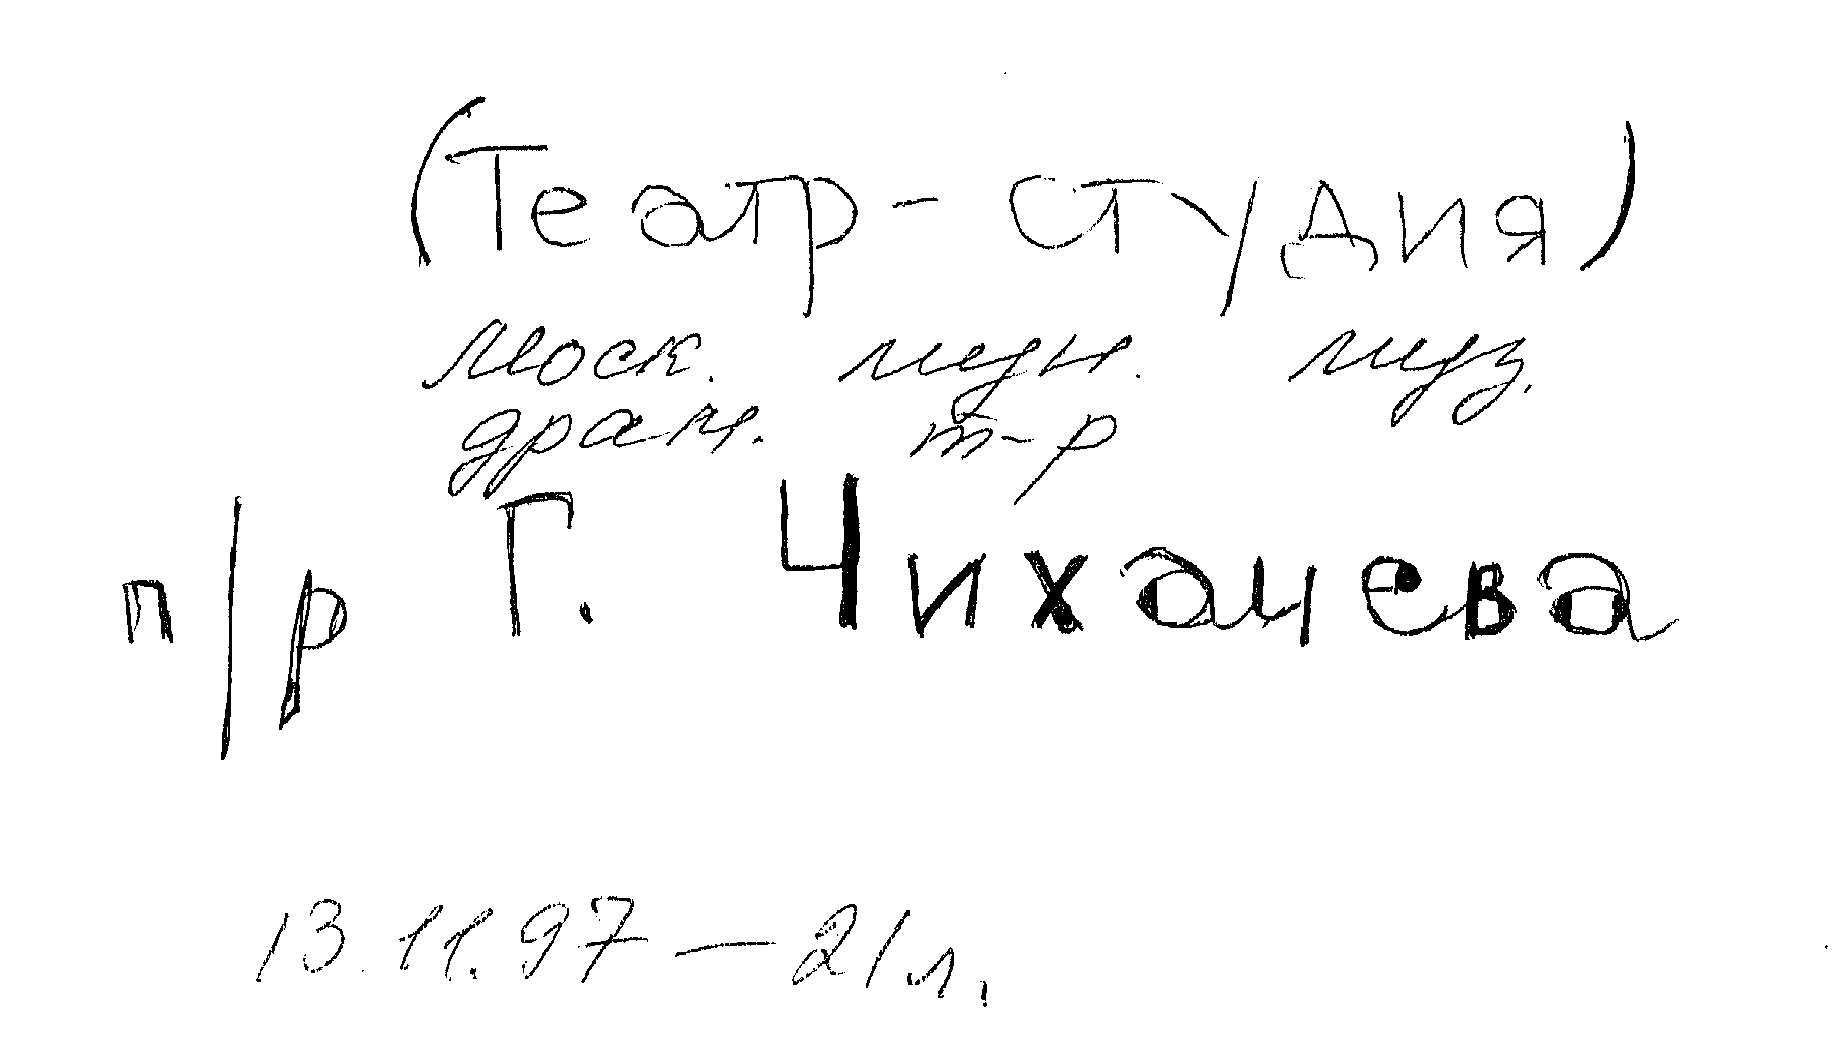 (Театр-студия)
моск. мун. муз.
драм. т-р
п/р Г. Чихачева
13.11.97 — 21 л.